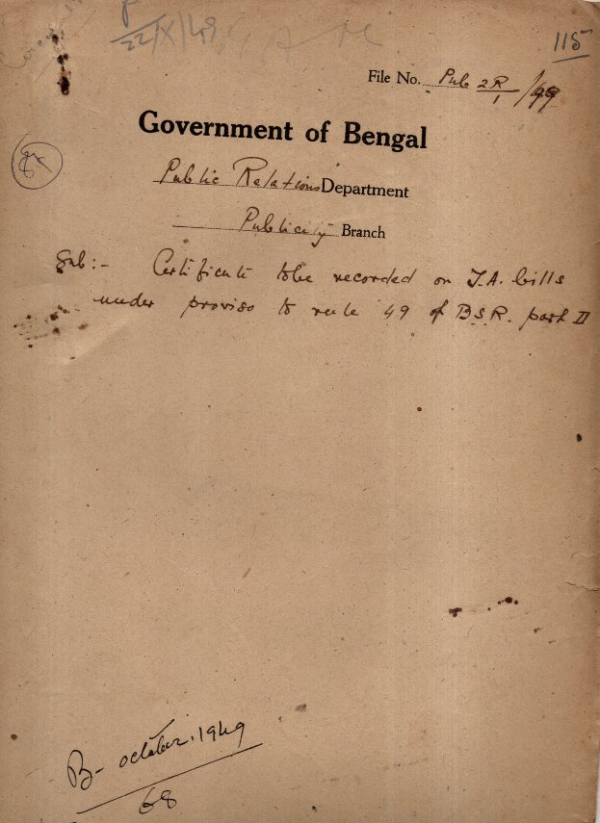 22/X/49
115
File No. Pub 2R/1/49
Government of Bengal
Public Relations Department
Publicity Branch
Sub:- Certificate to be recorded on T.A. bills
under proviso to rule 49 of B.S.R. part II
B- october. 1949
68